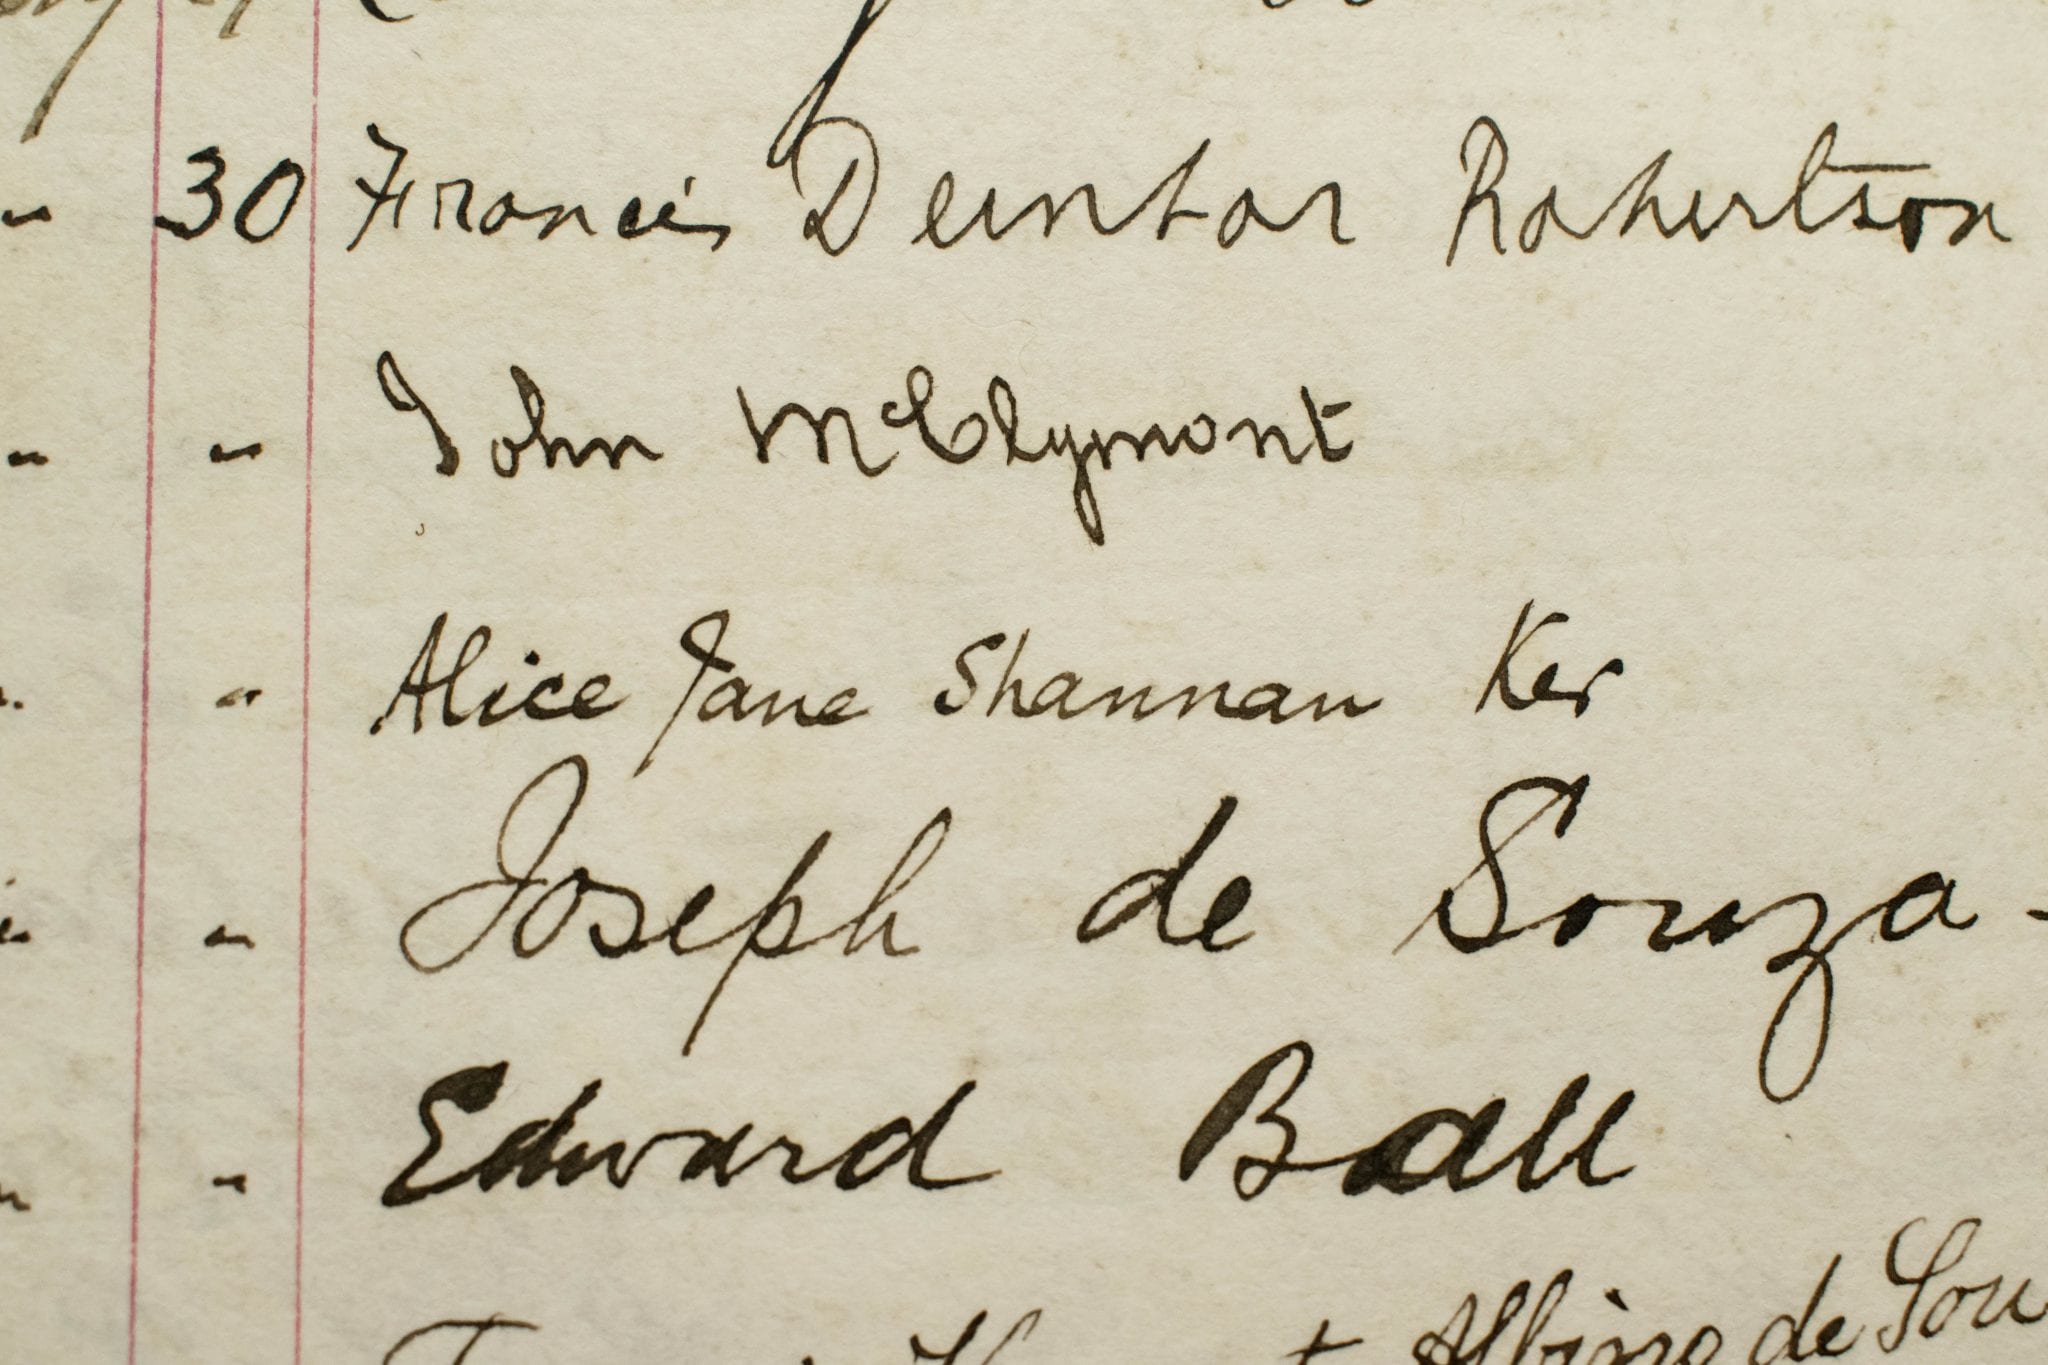 " 30 Francis Robertson
" " John McClymont
" " Alice Jane Shannan Ker
" " Joseph de Souza -
" " Edward Ball
Albino de Sou